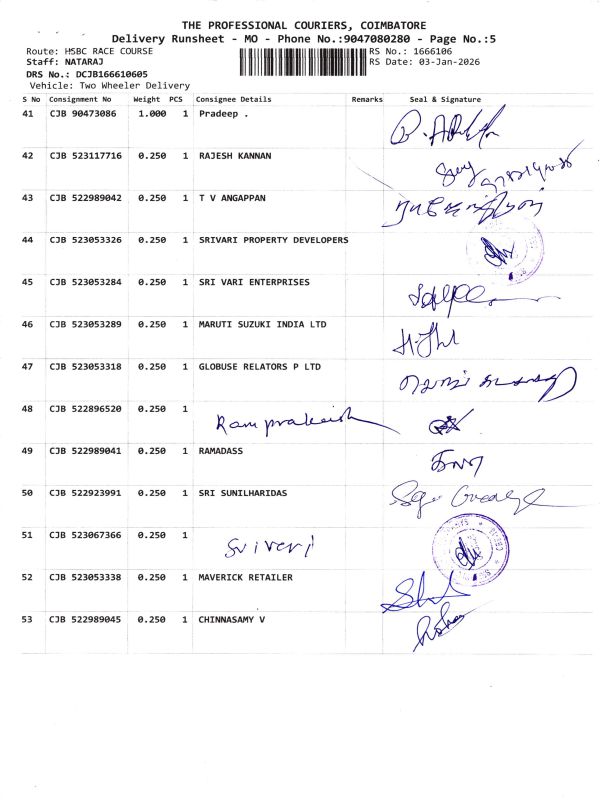 THE PROFESSIONAL COURIERS, COIMBATORE
Delivery Runsheet - MO - Phone No.:9047080280 - Page No.:5
Route: HSBC RACE COURSE
RS No.: 1666106
Staff: NATARAJ
RS Date: 03-Jan-2026
DRS No.: DCJB166610605
Vehicle: Two Wheeler Delivery
S No Consignment No Weight PCS Consignee Details Remarks Seal & Signature
41 CJB 90473086 1.000 1 Pradeep .
42 CJB 523117716 0.250 1 RAJESH KANNAN
43 CJB 522989042 0.250 1 T V ANGAPPAN
44 CJB 523053326 0.250 1 SRIVARI PROPERTY DEVELOPERS
45 CJB 523053284 0.250 1 SRI VARI ENTERPRISES
46 CJB 523053289 0.250 1 MARUTI SUZUKI INDIA LTD
47 CJB 523053318 0.250 1 GLOBUSE RELATORS P LTD
48 CJB 522896520 0.250 1 Ram prakash
49 CJB 522989041 0.250 1 RAMADASS
50 CJB 522923991 0.250 1 SRI SUNILHARIDAS
51 CJB 523067366 0.250 1 Sriveri
52 CJB 523053338 0.250 1 MAVERICK RETAILER
53 CJB 522989045 0.250 1 CHINNASAMY V